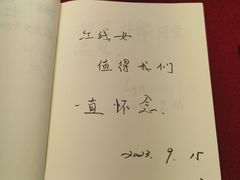 值得我们
一直怀念.
2023. 9. 15